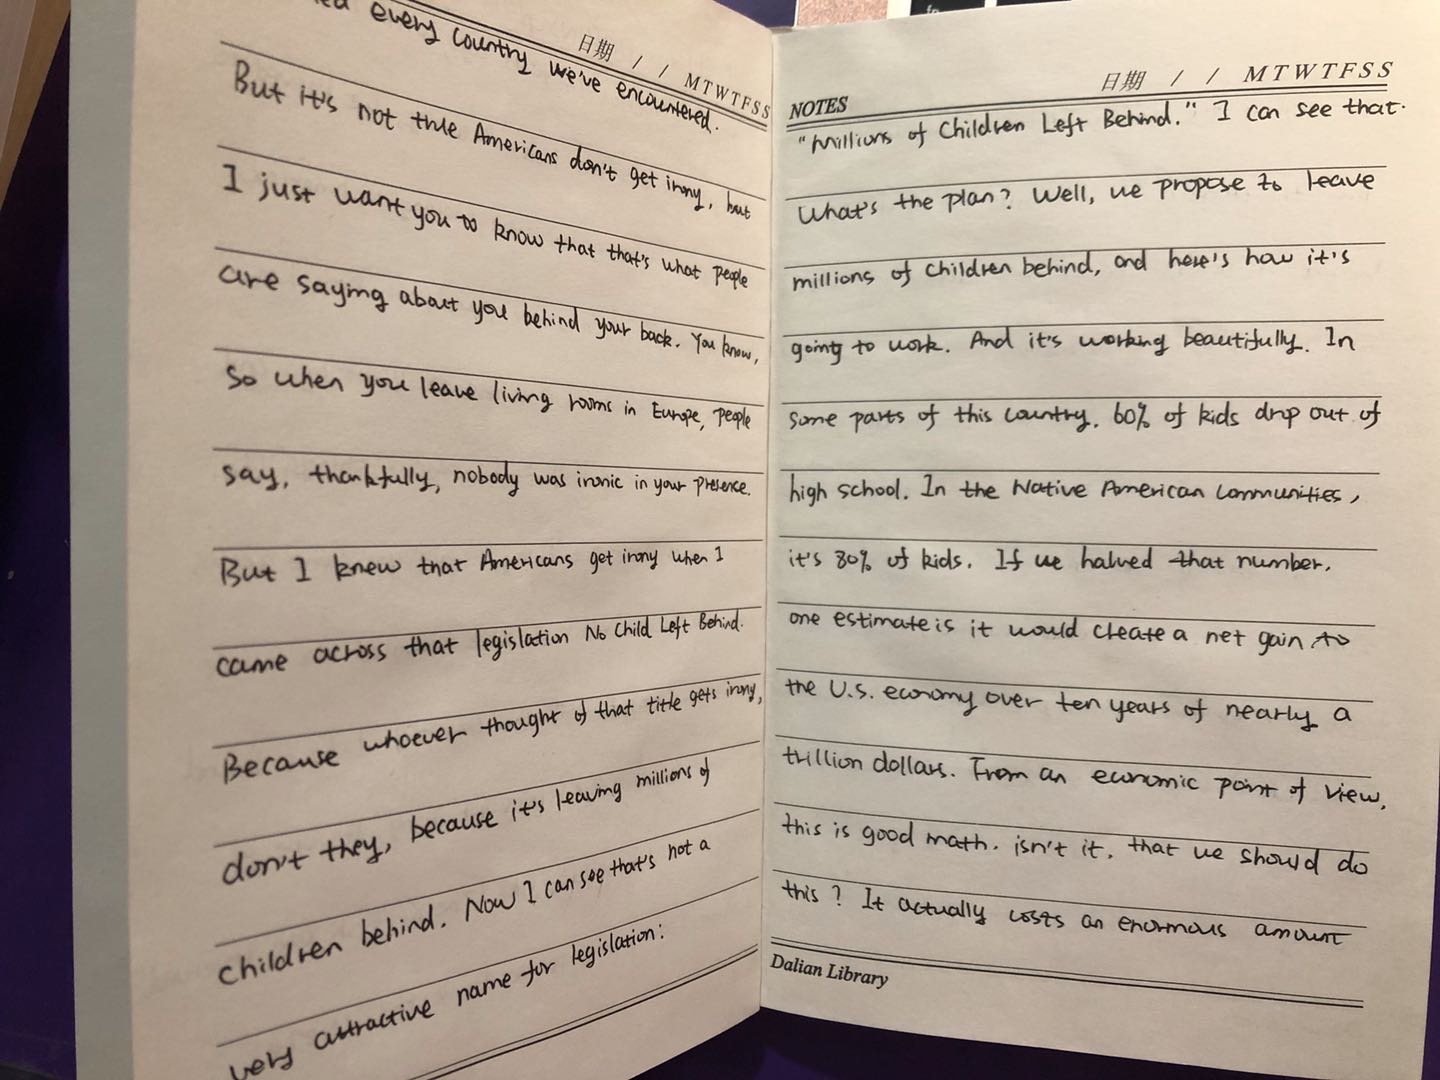 every country we've encountered.
日期 / / MTWTFSS
But it's not thle Americans don't get irony, but
I just want you to know that that's what people
are saying about you behind your back. You know,
so when you leave living rooms in Europe, people
say, thankfully, nobody was ironic in your presence.
But I knew that Americans get irony when I
came across that legislation No Child Left Behind.
Because whoever thought of that title gets irony,
don't they, because it's leaving millions of
children behind. Now I can see that's not a
very attractive name for legislation:
日期 / / MTWTFSS
NOTES
"Millions of Children Left Behind." I can see that.
What's the plan? Well, we propose to leave
millions of children behind, and here's how it's
going to work. And it's working beautifully. In
some parts of this country. 60% of kids drop out of
high school. In the Native American communities,
it's 80% of kids. If we halved that number.
one estimate is it would create a net gain to
the U.S. economy over ten years of nearly a
trillion dollars. From an economic point of view,
this is good math. isn't it. that we should do
this? It actually costs an enormous amount
Dalian Library